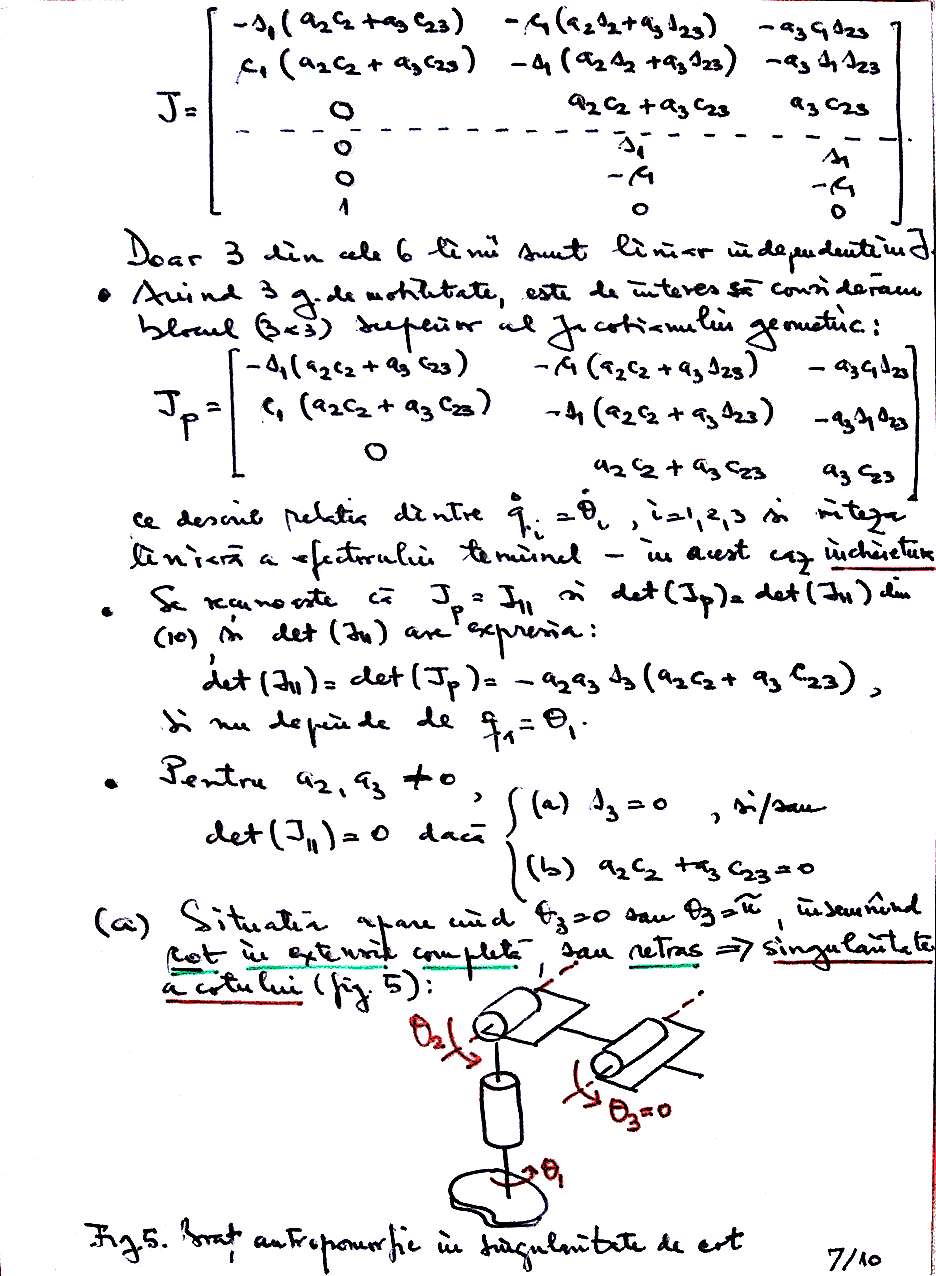 J = [ -s₁(a₂c₂+a₃c₂₃) -c₁(a₂s₂+a₃s₂₃) -a₃c₁s₂₃
c₁(a₂c₂+a₃c₂₃) -s₁(a₂s₂+a₃s₂₃) -a₃s₁s₂₃
0 a₂c₂+a₃c₂₃ a₃c₂₃
0 s₁ s₁
0 -c₁ -c₁
1 0 0 ]
Doar 3 din cele 6 linii sunt liniar independente în J.
• Avînd 3 g. de mobilitate, este de interes să considerăm
blocul (3×3) superior al Jacobianului geometric:
Jₚ = [ -s₁(a₂c₂+a₃c₂₃) -c₁(a₂c₂+a₃s₂₃) -a₃c₁s₂₃
c₁(a₂c₂+a₃c₂₃) -s₁(a₂c₂+a₃s₂₃) -a₃s₁s₂₃
0 a₂c₂+a₃c₂₃ a₃c₂₃ ]
ce descrie relația dintre q̇ᵢ = θ̇ᵢ, i=1,2,3 și viteza
liniară a efectorului terminal – în acest caz încheietura
• Se recunoaște că Jₚ = J₁₁ și det(Jₚ) = det(J₁₁) din
(10) și det(J₁₁) are expresia:
det(J₁₁) = det(Jₚ) = -a₂a₃s₃(a₂c₂+a₃c₂₃),
și nu depinde de q₁=θ₁.
• Pentru a₂, a₃ ≠ 0,
det(J₁₁)=0 dacă { (a) s₃=0 , și/sau
(b) a₂c₂+a₃c₂₃=0
(a) Situația apare cînd θ₃=0 sau θ₃=π, însemnînd
cot în extensie completă, sau retras ⇒ singularitate
a cotului (fig. 5):
θ₂
θ₃=0
θ₁
Fig 5. Braț antropomorfic în singularitate de cot
7/10